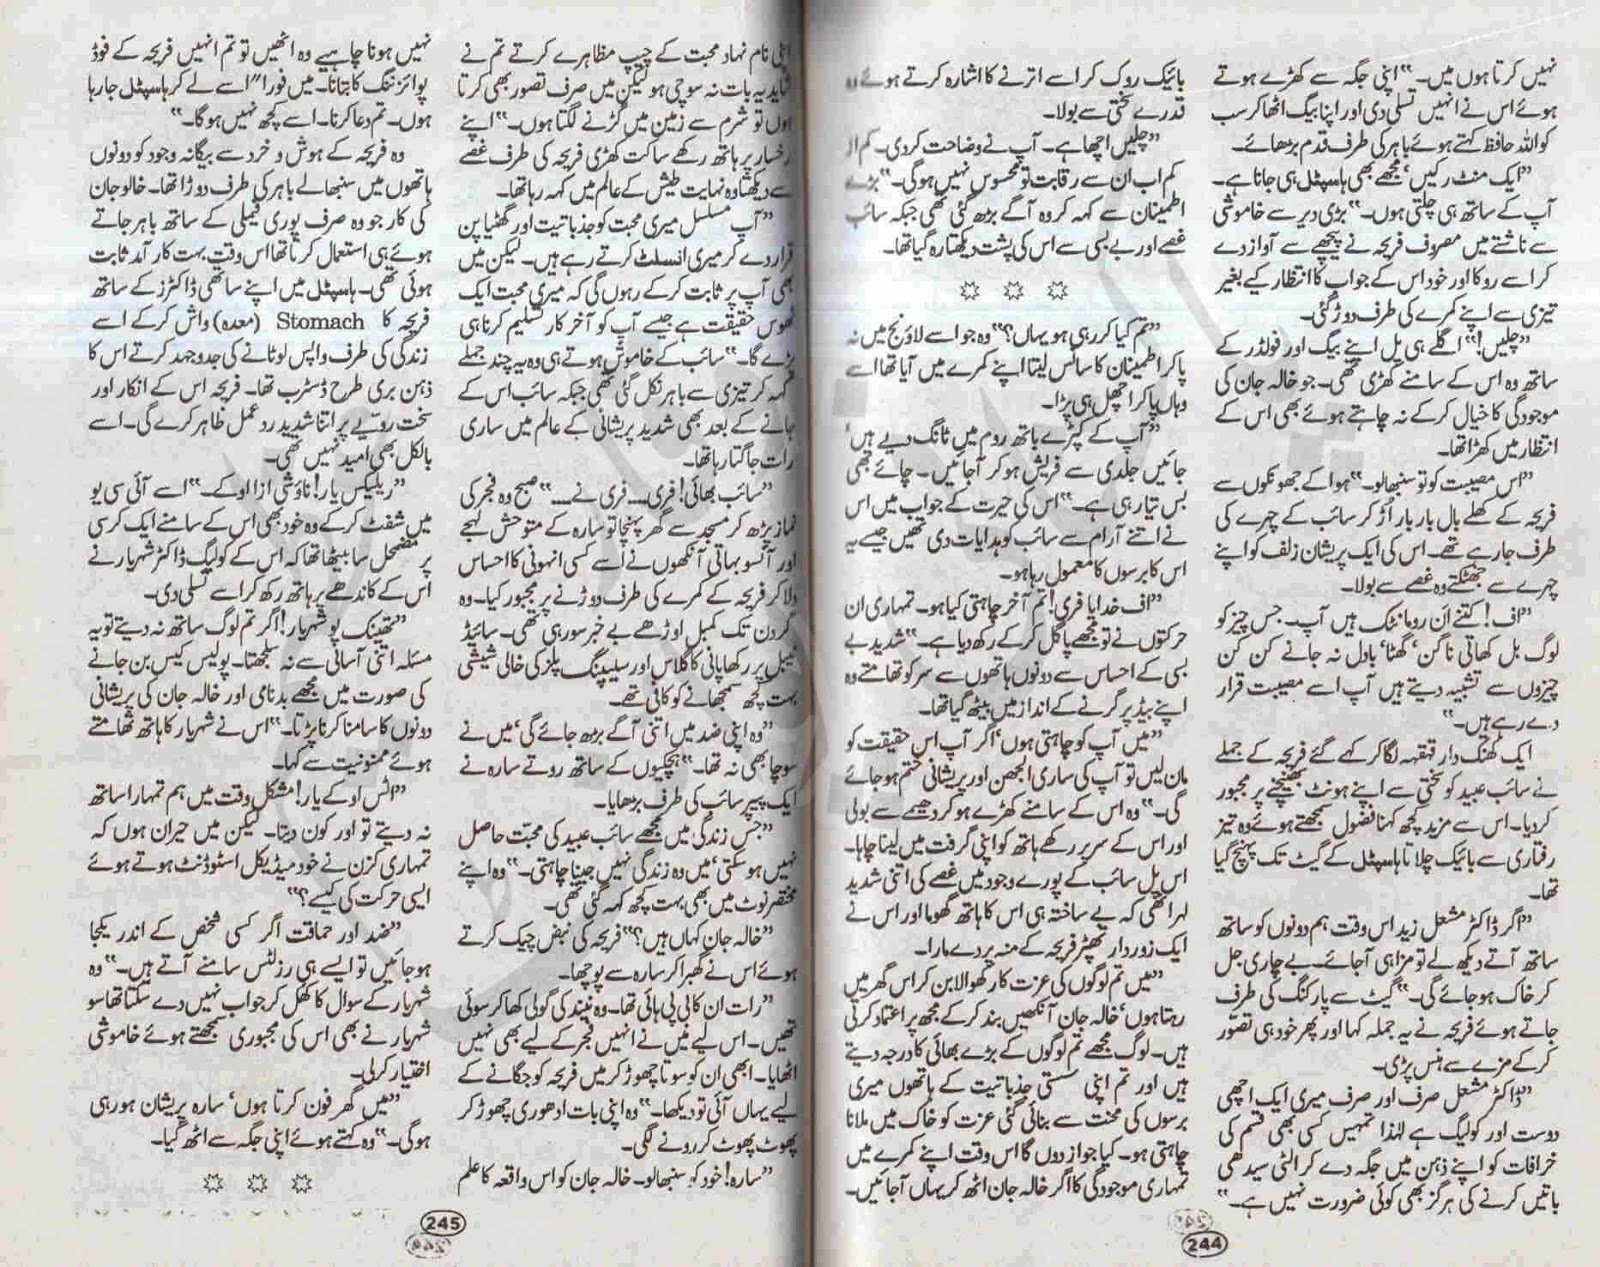 نہیں کرتا ہوں میں۔“ اپنی جگہ سے کھڑے ہوتے
ہوئے اس نے انہیں تسلی دی اور اپنا بیگ اٹھا کر سب
کو اللہ حافظ کہتے ہوئے باہر کی طرف قدم بڑھائے۔
”ایک منٹ رکیں‘ مجھے بھی ہاسپٹل ہی جانا ہے۔
آپ کے ساتھ ہی چلتی ہوں۔“ بڑی دیر سے خاموشی
سے ناشتے میں مصروف فریحہ نے پیچھے سے آواز دے
کر اسے روکا اور خود اس کے جواب کا انتظار کیے بغیر
تیزی سے اپنے کمرے کی طرف دوڑ گئی۔
”چلیں!“ اگلے ہی پل اپنے بیگ اور فولڈر کے
ساتھ وہ اس کے سامنے کھڑی تھی۔ جو خالہ جان کی
موجودگی کا خیال کر کے نہ چاہتے ہوئے بھی اس کے
انتظار میں کھڑا تھا۔
”اس مصیبت کو تو سنبھالو۔“ ہوا کے جھونکوں سے
فریحہ کے کھلے بال بار بار اڑ کر سائب کے چہرے کی
طرف جا رہے تھے۔ اس کی ایک پریشان زلف کو اپنے
چہرے سے جھٹکتے وہ غصے سے بولا۔
”اف! کتنے ان رومانٹک ہیں آپ۔ جس چیز کو
لوگ بل کھاتی ناگن‘ گھٹا‘ بادل نہ جانے کن کن
چیزوں سے تشبیہ دیتے ہیں آپ اسے مصیبت قرار
دے رہے ہیں۔“
ایک کھنک دار قہقہہ لگا کر کہے گئے فریحہ کے جملے
نے سائب عبید کو سختی سے اپنے ہونٹ بھینچنے پر مجبور
کر دیا۔ اس سے مزید کچھ کہنا فضول سمجھتے ہوئے وہ تیز
رفتاری سے بائیک چلاتا ہاسپٹل کے گیٹ تک پہنچ گیا
تھا۔
”اگر ڈاکٹر مشعل زید اس وقت ہم دونوں کو ساتھ
ساتھ آتے دیکھ لے تو مزا ہی آجائے۔ بے چاری جل
کر خاک ہو جائے گی۔“ گیٹ سے پارکنگ کی طرف
جاتے ہوئے فریحہ نے یہ جملہ کہا اور پھر خود ہی تصور
کر کے مزے سے ہنس پڑی۔
”ڈاکٹر مشعل صرف اور صرف میری ایک اچھی
دوست اور کولیگ ہے لہٰذا تمہیں کسی بھی قسم کی
خرافات کو اپنے ذہن میں جگہ دے کر الٹی سیدھی
باتیں کرنے کی ہرگز بھی کوئی ضرورت نہیں ہے۔“
بائیک روک کر اسے اترنے کا اشارہ کرتے ہوئے وہ
قدرے سختی سے بولا۔
”چلیں اچھا ہے۔ آپ نے وضاحت کر دی۔ کم از
کم اب ان سے رقابت تو محسوس نہیں ہوگی۔“ بڑے
اطمینان سے کہہ کر وہ آگے بڑھ گئی تھی جبکہ سائب
غصے اور بے بسی سے اس کی پشت دیکھتا رہ گیا تھا۔
”تم کیا کر رہی ہو یہاں؟“ وہ جو اسے لاؤنج میں نہ
پا کر اطمینان کا سانس لیتا اپنے کمرے میں آیا تھا اسے
وہاں پا کر اچھل ہی پڑا۔
”آپ کے کپڑے باتھ روم میں ٹانگ دیے ہیں‘
جائیں جلدی سے فریش ہو کر آجائیں۔ چائے بھی
بس تیار ہی ہے۔“ اس کی حیرت کے جواب میں اس
نے اتنے آرام سے سائب کو ہدایات دی تھیں جیسے یہ
اس کا برسوں کا معمول رہا ہو۔
”اف خدایا فری! تم آخر چاہتی کیا ہو۔ تمہاری ان
حرکتوں نے تو مجھے پاگل کر کے رکھ دیا ہے۔“ شدید بے
بسی کے احساس سے دونوں ہاتھوں سے سر کو تھامتے وہ
اپنے بیڈ پر گرنے کے انداز میں بیٹھ گیا تھا۔
”میں آپ کو چاہتی ہوں‘ اگر آپ اس حقیقت کو
مان لیں تو آپ کی ساری الجھن اور پریشانی ختم ہو جائے
گی۔“ وہ اس کے سامنے کھڑے ہو کر دھیمے سے بولی
اور اس کے سر پر رکھے ہاتھ کو اپنی گرفت میں لینا چاہا۔
اس پل سائب کے پورے وجود میں غصے کی اتنی شدید
لہر اٹھی کہ بے ساختہ ہی اس کا ہاتھ گھوما اور اس نے
ایک زور دار تھپڑ فریحہ کے منہ پر دے مارا۔
”میں تم لوگوں کی عزت کا رکھوالا بن کر اس گھر میں
رہتا ہوں‘ خالہ جان آنکھیں بند کر کے مجھ پر اعتماد کرتی
ہیں۔ لوگ مجھے تم لوگوں کے بڑے بھائی کا درجہ دیتے
ہیں اور تم اپنی سستی جذباتیت کے ہاتھوں میری
برسوں کی محنت سے بنائی گئی عزت کو خاک میں ملانا
چاہتی ہو۔ کیا جواز دوں گا اس وقت اپنے کمرے میں
تمہاری موجودگی کا اگر خالہ جان اٹھ کر یہاں آجائیں۔
244
اپنی نام نہاد محبت کے چیپ مظاہرے کرتے تم نے
شاید یہ بات نہ سوچی ہو لیکن میں صرف تصور بھی کرتا
ہوں تو شرم سے زمین میں گڑنے لگتا ہوں۔“ اپنے
رخسار پر ہاتھ رکھے ساکت کھڑی فریحہ کی طرف غصے
سے دیکھتا وہ نہایت طیش کے عالم میں کہہ رہا تھا۔
”آپ مسلسل میری محبت کو جذباتیت اور گھٹیا پن
قرار دے کر میری انسلٹ کرتے رہے ہیں۔ لیکن میں
بھی آپ پر ثابت کر کے رہوں گی کہ میری محبت ایک
ٹھوس حقیقت ہے جسے آپ کو آخر کار تسلیم کرنا ہی
پڑے گا۔“ سائب کے خاموش ہوتے ہی وہ یہ چند جملے
کہہ کر تیزی سے باہر نکل گئی تھی جبکہ سائب اس کے
جانے کے بعد بھی شدید پریشانی کے عالم میں ساری
رات جاگتا رہا تھا۔
”سائب بھائی! فری۔۔۔ فری نے۔۔۔“ صبح وہ فجر کی
نماز پڑھ کر مسجد سے گھر پہنچا تو سارہ کے متوحش لہجے
اور آنسو بہاتی آنکھوں نے اسے کسی انہونی کا احساس
دلا کر فریحہ کے کمرے کی طرف دوڑنے پر مجبور کیا۔ وہ
گردن تک کمبل اوڑھے بے خبر سو رہی تھی۔ سائیڈ
ٹیبل پر رکھا پانی کا گلاس اور سلیپنگ پلز کی خالی شیشی
بہت کچھ سمجھانے کو کافی تھے۔
”وہ اپنی ضد میں اتنی آگے بڑھ جائے گی‘ میں نے
سوچا بھی نہ تھا۔“ ہچکیوں کے ساتھ روتے سارہ نے
ایک پیپر سائب کی طرف بڑھایا۔
”جس زندگی میں مجھے سائب عبید کی محبت حاصل
نہیں ہو سکتی‘ میں وہ زندگی نہیں جینا چاہتی۔“ وہ اپنے
مختصر نوٹ میں بھی بہت کچھ کہہ گئی تھی۔
”خالہ جان کہاں ہیں؟“ فریحہ کی نبض چیک کرتے
ہوئے اس نے گھبرا کر سارہ سے پوچھا۔
”رات ان کا بی پی ہائی تھا۔ وہ نیند کی گولی کھا کر سوئی
تھیں۔ اس لیے میں نے انہیں فجر کے لیے بھی نہیں
اٹھایا۔ ابھی ان کو سوتا چھوڑ کر میں فریحہ کو جگانے کے
لیے یہاں آئی تو دیکھا۔“ وہ اپنی بات ادھوری چھوڑ کر
پھوٹ پھوٹ کر رونے لگی۔
”سارہ! خود کو سنبھالو۔ خالہ جان کو اس واقعہ کا علم
نہیں ہونا چاہیے وہ اٹھیں تو تم انہیں فریحہ کے فوڈ
پوائزننگ کا بتانا۔ میں فوراً اسے لے کر ہاسپٹل جا رہا
ہوں۔ تم دعا کرنا۔ اسے کچھ نہیں ہوگا۔“
وہ فریحہ کے ہوش و خرد سے بیگانہ وجود کو دونوں
ہاتھوں میں سنبھالے باہر کی طرف دوڑا تھا۔ خالو جان
کی کار جو وہ صرف پوری فیملی کے ساتھ باہر جاتے
ہوئے ہی استعمال کرتا تھا اس وقت بہت کار آمد ثابت
ہوئی تھی۔ ہاسپٹل میں اپنے ساتھی ڈاکٹرز کے ساتھ
فریحہ کا Stomach (معدہ) واش کر کے اسے
زندگی کی طرف واپس لوٹانے کی جدوجہد کرتے اس کا
ذہن بری طرح ڈسٹرب تھا۔ فریحہ اس کے انکار اور
سخت رویے پر اتنا شدید رد عمل ظاہر کرے گی۔ اسے
بالکل بھی امید نہیں تھی۔
”ریلیکس یار! ناؤ شی از او کے۔“ اسے آئی سی یو
میں شفٹ کر کے وہ خود بھی اس کے سامنے ایک کرسی
پر مضمحل سا بیٹھا تھا کہ اس کے کولیگ ڈاکٹر شہریار نے
اس کے کاندھے پر ہاتھ رکھ کر اسے تسلی دی۔
”تھینک یو شہریار! اگر تم لوگ ساتھ نہ دیتے تو یہ
مسئلہ اتنی آسانی سے نہ سلجھتا۔ پولیس کیس بن جانے
کی صورت میں مجھے بدنامی اور خالہ جان کی پریشانی
دونوں کا سامنا کرنا پڑتا۔“ اس نے شہریار کا ہاتھ تھامتے
ہوئے ممنونیت سے کہا۔
”اٹس اوکے یار! مشکل وقت میں ہم تمہارا ساتھ
نہ دیتے تو اور کون دیتا۔ لیکن میں حیران ہوں کہ
تمہاری کزن نے خود میڈیکل اسٹوڈنٹ ہوتے ہوئے
ایسی حرکت کی کیسے؟“
”ضد اور حماقت اگر کسی شخص کے اندر یکجا
ہو جائیں تو ایسے ہی رزلٹس سامنے آتے ہیں۔“ وہ
شہریار کے سوال کا کھل کر جواب نہیں دے سکتا تھا سو
شہریار نے بھی اس کی مجبوری سمجھتے ہوئے خاموشی
اختیار کر لی۔
”میں گھر فون کرتا ہوں‘ سارہ پریشان ہو رہی
ہوگی۔“ وہ کہتے ہوئے اپنی جگہ سے اٹھ گیا۔
245